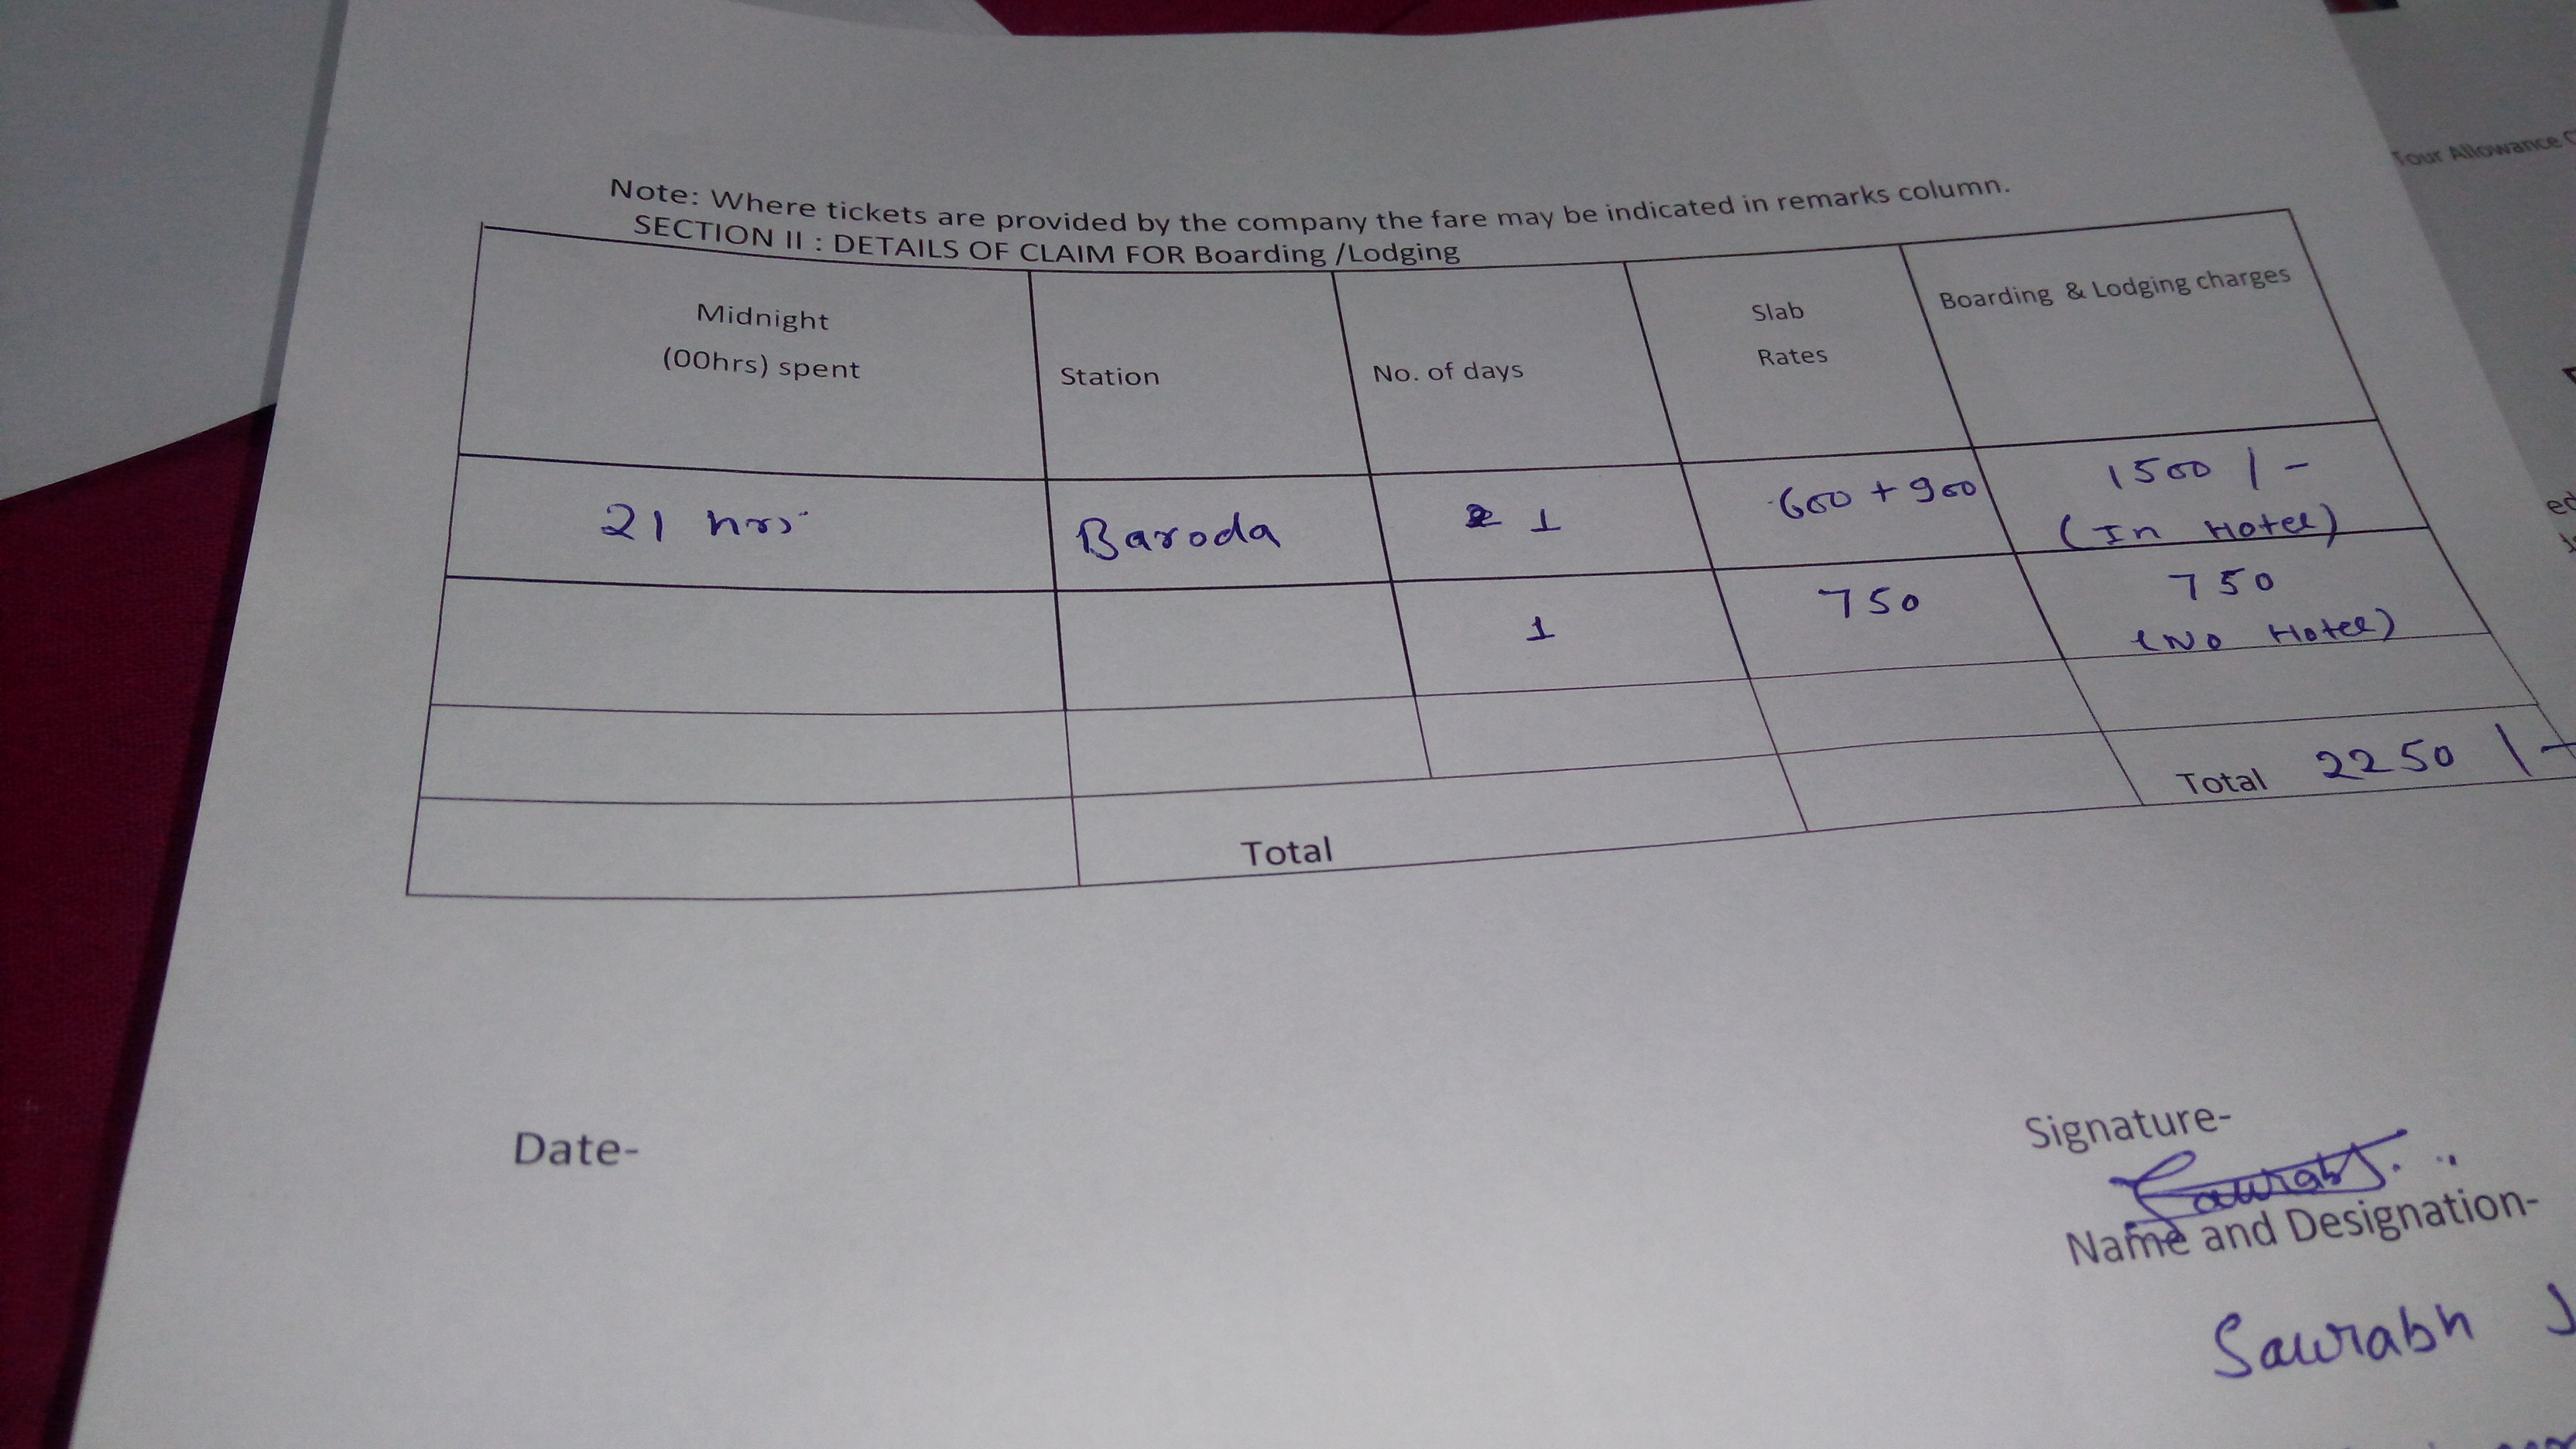 Tour Allowance
Note: Where tickets are provided by the company the fare may be indicated in remarks column.
SECTION II : DETAILS OF CLAIM FOR Boarding /Lodging
Midnight
(00hrs) spent
Station
No. of days
Slab
Rates
Boarding & Lodging charges
21 hrs
Baroda
1
600 + 900
1500 /-
(In Hotel)
1
750
750
(No Hotel)
Total
Total 2250 /-
Date-
Signature-
Saurabh
Name and Designation-
Saurabh J